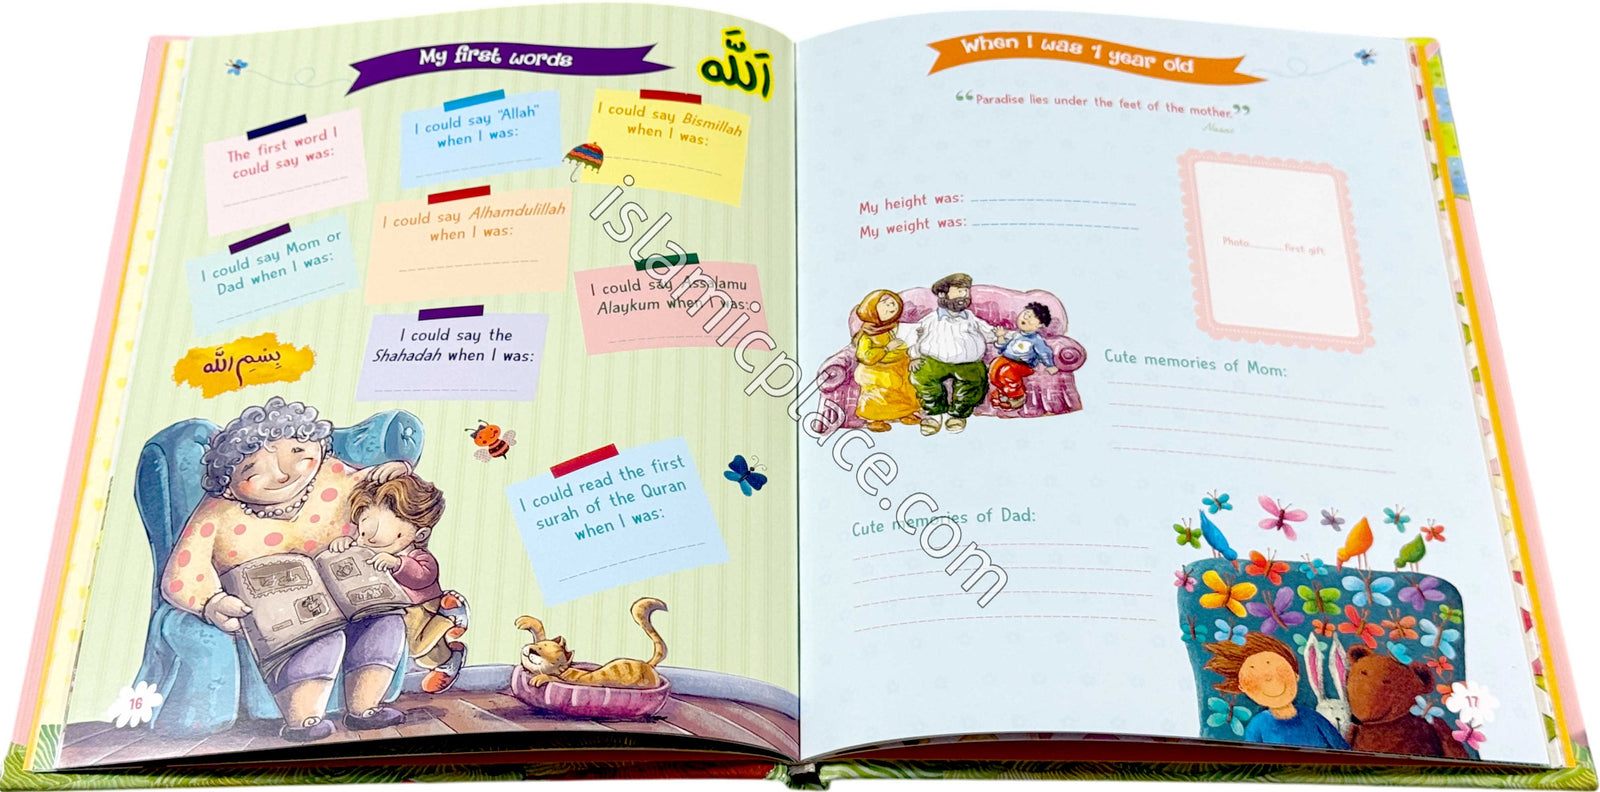 My first words
اَللّٰه
The first word I
could say was:
I could say "Allah"
when I was:
I could say Bismillah
when I was:
I could say Mom or
Dad when I was:
I could say Alhamdulillah
when I was:
I could say Assalamu
Alaykum when I was:
I could say the
Shahadah when I was:
بِسْمِ اللّٰه
I could read the first
surah of the Quran
when I was:
16
When I was 1 year old
“Paradise lies under the feet of the mother.”
My height was:
My weight was:
Photo first gift
Cute memories of Mom:
Cute memories of Dad:
17
islamicplace.com